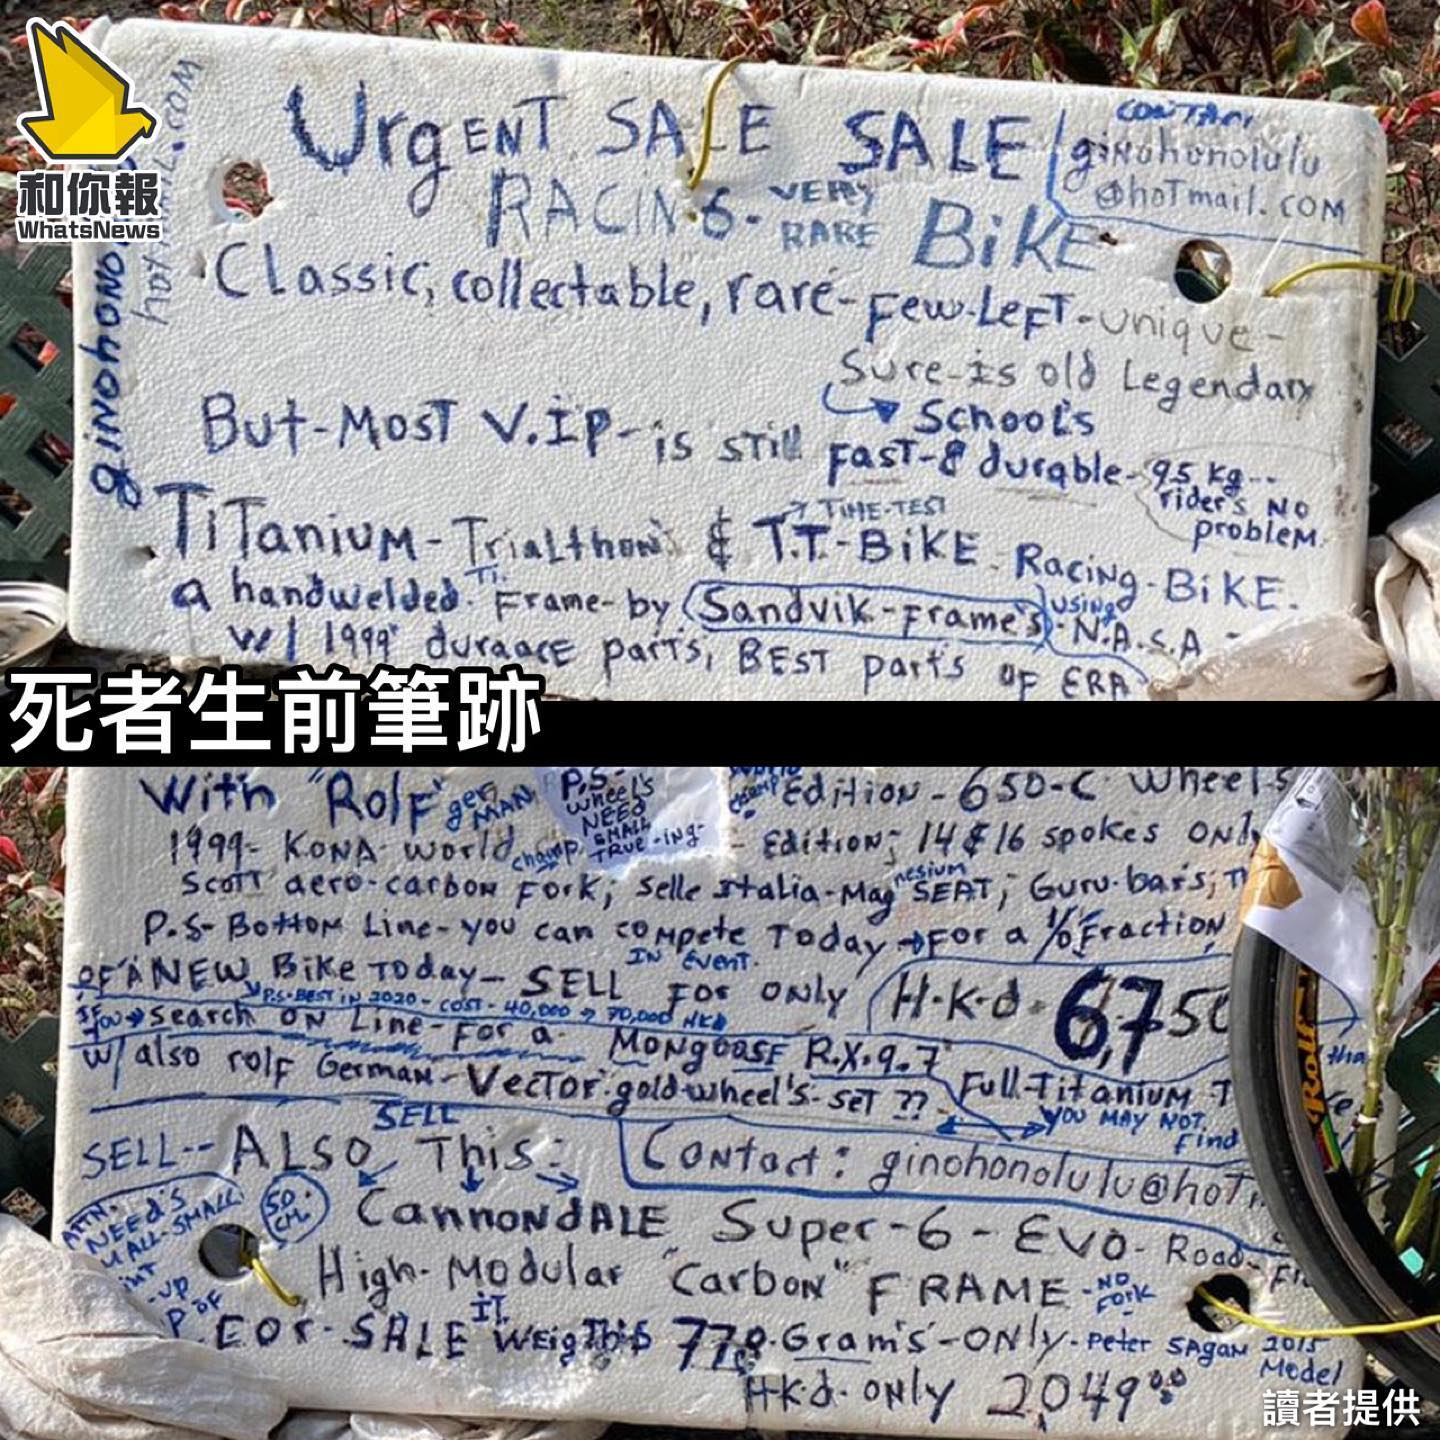 和你報
WhatsNews
HOTMAIL.COM
Urgent SALE SALE
CONTACT
ginohonolulu
@hoTmail.COM
RACING - VERY RARE BiKE
Classic, collectable, rare - Few-LefT - unique -
Sure-is old Legendary
School's
But-MosT V.I.P - is still FasT-& durable - 95 kg --
rider's NO
problem.
TIME-TEST
TiTanium - Trialthon & T.T.-BiKE - Racing - BiKE.
a handwelded Ti. Frame - by Sandvik-Frame's USING N.A.S.A -
w/ 1999' duraace parts, BEST parts OF ERA
死者生前筆跡
With "Rolf" gerMAN
P.S-
wheel's
NEED
SMALL
TRUE-ing-
World champ Edition - 650-C Wheels
1999- KONA World champ. - Edition; 14 & 16 spokes ONly
Scott aero-carbon Fork; Selle Italia-Magnesium SEAT; Guru-bars;
P.S- BoTTom Line - you can compete Today → For a % Fraction
IN EVENT.
OF A NEW Bike Today - SELL For only H.K.d 6,750
P.S-BEST IN 2020 - COST - 40,000 → 70,000 HKD
IF you → search ON Line - For a - MONgoose R.X.9.7
w/ also rolf German - Vector gold wheel's - seT ??
Full-Titanium
YOU MAY NOT
Find
SELL
SELL-- ALSO This:
Contact: ginohonolulu@hoT
ATTN.
NEEd's
SMALL
50.
CM.
CannondALE Super-6-EVO- Road-
High-Modular "Carbon" FRAME - NO Fork -
For-SALE IT Weighs 770 Gram's - ONly - Peter Sagan 2015 Model
H.K.d. only 2,049.00
Rolf
讀者提供